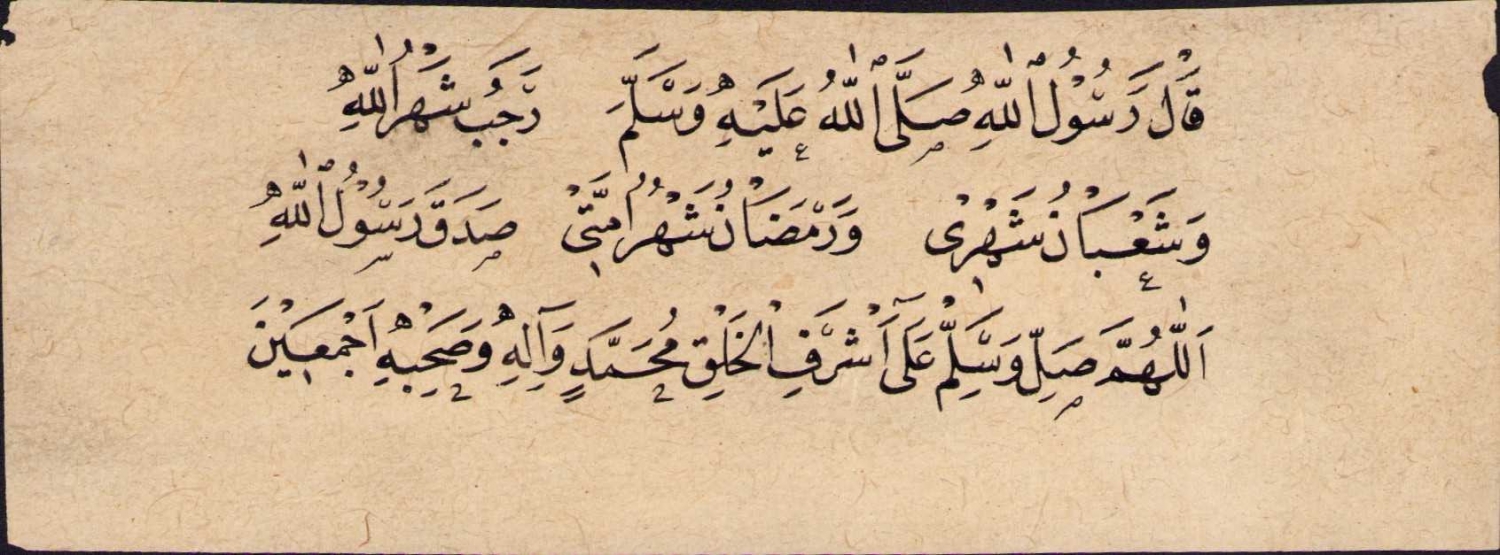 قَالَ رَسُوْلُ ٱللّٰهِ صَلَّى ٱللّٰهُ عَلَيْهِ وَسَلَّمَ رَجَبُ شَهْرُ اللّٰهِ
وَشَعْبَانُ شَهْرِىْ وَرَمَضَانُ شَهْرُ اُمَّتِىْ صَدَقَ رَسُوْلُ ٱللّٰهِ
اَللّٰهُمَّ صَلِّ وَسَلِّمْ عَلَى اَشْرَفِ الْخَلْقِ مُحَمَّدٍ وَآلِهِ وَصَحْبِهِ اَجْمَعِيْنَ